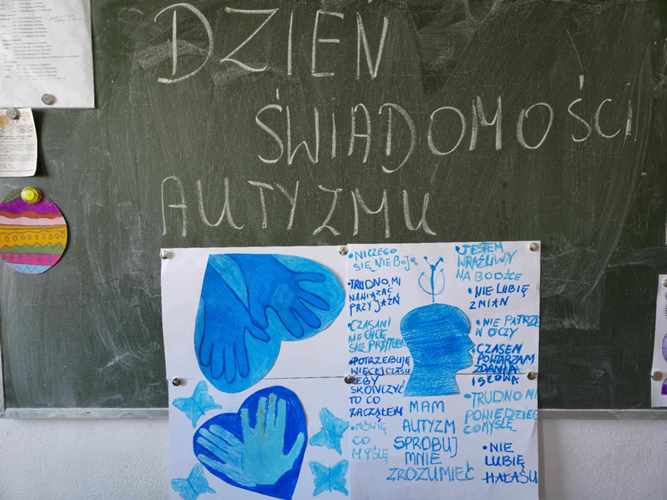 DZIEŃ
ŚWIADOMOŚCI
AUTYZMU
•NICZEGO
SIĘ NIE BOJĘ
•TRUDNO MI
NAWIĄZAĆ
PRZYJAŹŃ
•CZASAMI
NIE CHCĘ
SIĘ
•POTRZEBUJĘ
WIĘCEJ CZASU
ŻEBY
SKOŃCZYĆ
TO CO
ZACZĄŁEM
•MÓWIĘ
CO
MYŚLĘ
•JESTEM
WRAŻLIWY
NA BODŹCE
•NIE LUBIĘ
ZMIAN
•NIE PATRZĘ
W OCZY
•CZASEM
POWTARZAM
ZDANIA
I SŁOWA
•TRUDNO MI
POWIEDZIEĆ
CO MYŚLĘ
•NIE
LUBIĘ
HAŁASU
MAM
AUTYZM
SPRÓBUJ
MNIE
ZROZUMIEĆ